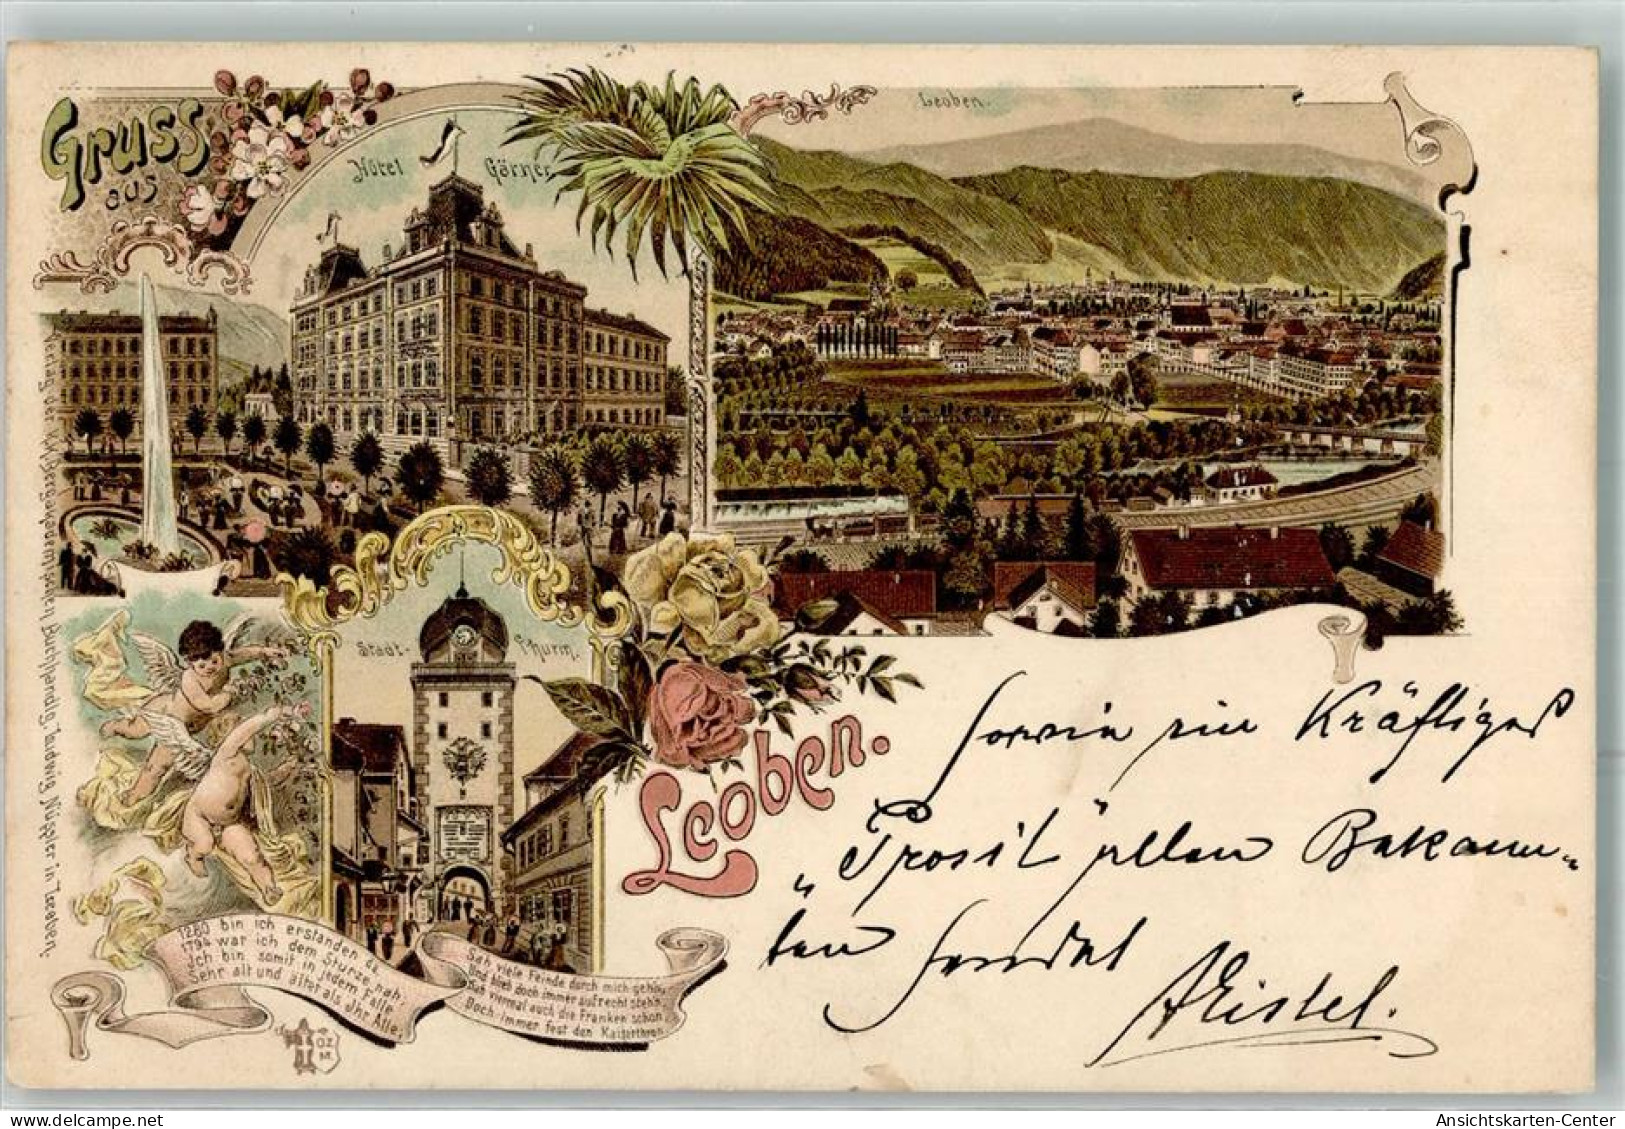 Gruss
aus
Hôtel Gärner
Leoben.
Verlag der k.k. Bergakademischen Buchhandlg. Ludwig Nüssler in Leoben.
Stadt- Thurm.
Leoben.
1280 bin ich erstanden da,
1794 war ich dem Sturze nah.
Ich bin somit in jedem Falle
Sehr alt und älter als Ihr Alle.
Sah viele Feinde durch mich gehn,
Und blieb doch immer aufrecht stehn,
Sah viermal auch die Franken schon,
Doch immer fest den Kaiserthron.
OZ.
M.
sowie ein Kräftiges
„Prosit" allen Bekann-
ten sendet
Eistel.
Ansichtskarten-Center